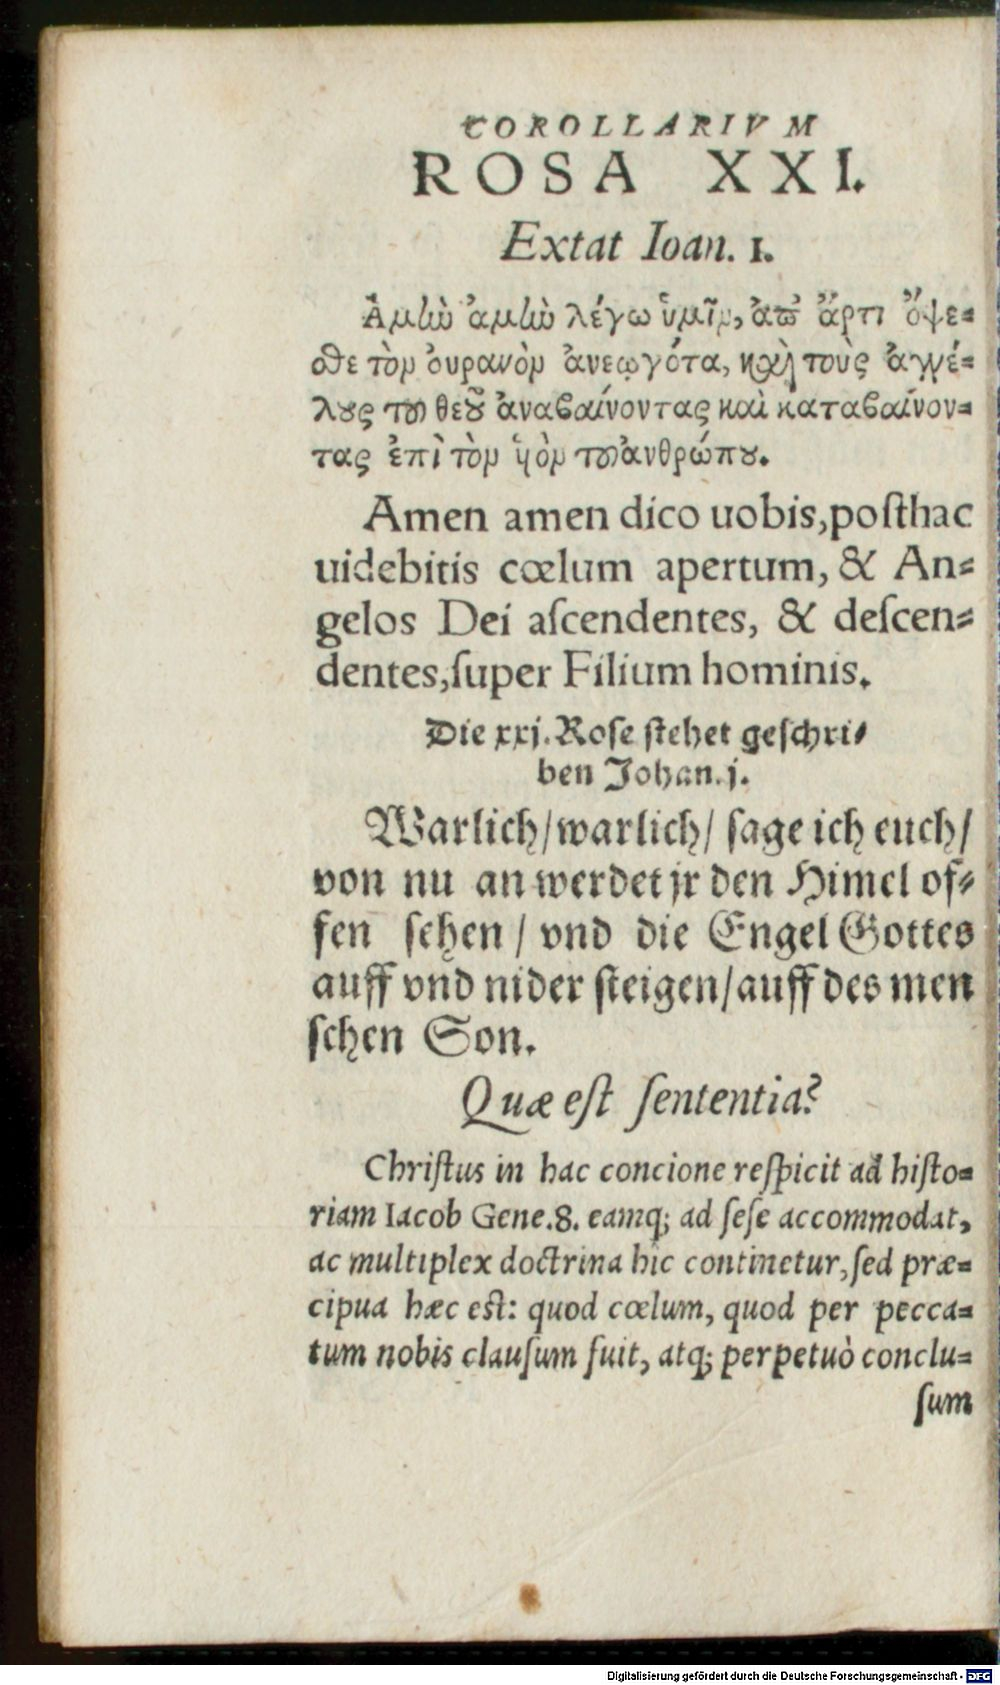 COROLLARIVM
ROSA XXI.
Extat Ioan. 1.
Ἀμὼ ἀμὼ λέγω ὑμῖν, ἀπ' ἄρτι ὄψε=
σθε τὸν ὀυρανὸν ἀνεῳγότα, καὶ τοὺς ἀγγέ=
λους τοῦ θεοῦ ἀναβαίνοντας καὶ καταβαίνον=
τας ἐπὶ τὸν ὑὸν τοῦ ἀνθρώπου.
Amen amen dico uobis, posthac
uidebitis cœlum apertum, & An=
gelos Dei ascendentes, & descen=
dentes, super Filium hominis.
Die xxj. Rose stehet geschri=
ben Johan. j.
Warlich/ warlich/ sage ich euch/
von nu an werdet jr den Himel of=
fen sehen / vnd die Engel Gottes
auff vnd nider steigen/ auff des men
schen Son.
Quæ est sententia?
Christus in hac concione respicit ad histo=
riam Iacob Gene. 8. eamq; ad sese accommodat,
ac multiplex doctrina hic continetur, sed præ=
cipua hæc est: quod cœlum, quod per pecca=
tum nobis clausum fuit, atq; perpetuò conclu=
sum
Digitalisierung gefördert durch die Deutsche Forschungsgemeinschaft - DFG